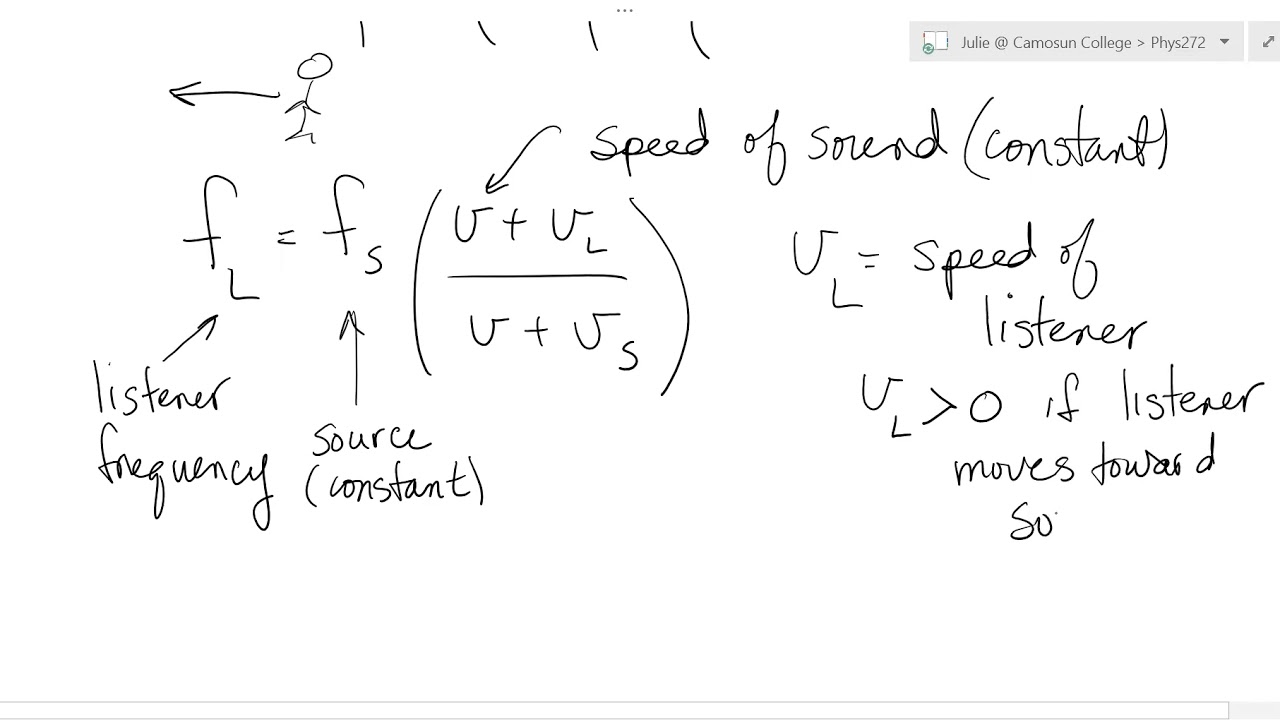 Julie @ Camosun College > Phys272
speed of sound (constant)
f_L = f_S ( (v + v_L) / (v + v_S) )
v_L = speed of
listener
v_L > 0 if listener
moves toward
so
listener
frequency
source
(constant)